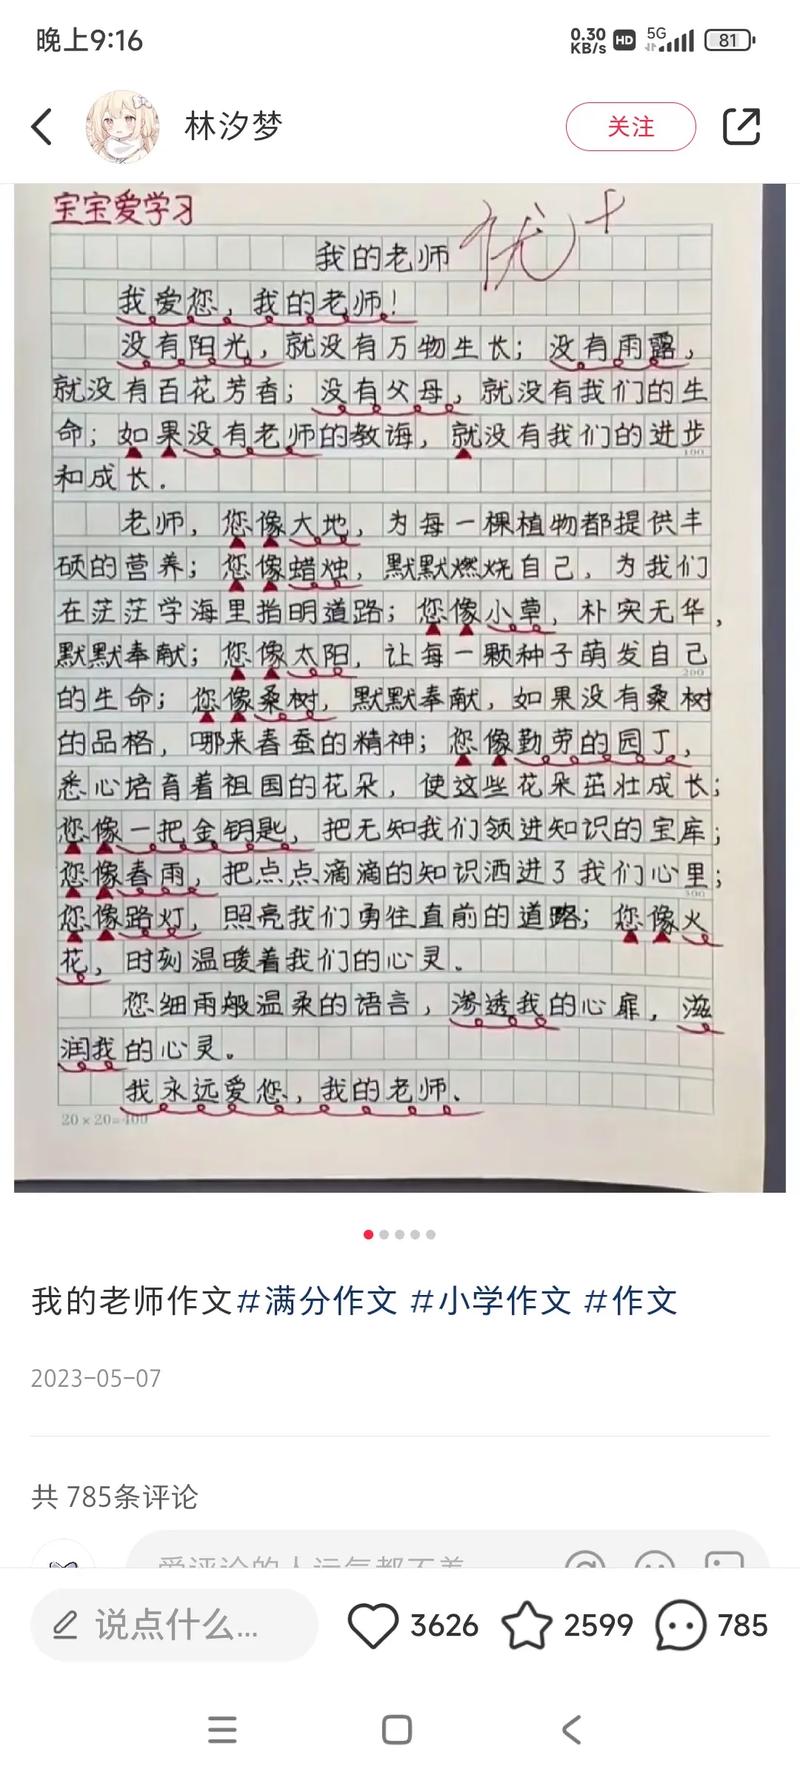 晚上9:16
0.30 KB/s HD 5G 81
林汐梦
关注
宝宝爱学习
优+
我的老师
我爱您，我的老师！
没有阳光，就没有万物生长；没有雨露，
就没有百花芳香；没有父母，就没有我们的生
命；如果没有老师的教诲，就没有我们的进步
100
和成长.
老师，您像大地，为每一棵植物都提供丰
硕的营养；您像蜡烛，默默燃烧自己，为我们
在茫茫学海里指明道路；您像小草，朴实无华，
默默奉献；您像太阳，让每一颗种子萌发自己
200
的生命；您像桑树，默默奉献，如果没有桑树
的品格，哪来春蚕的精神；您像勤劳的园丁，
悉心培育着祖国的花朵，使这些花朵茁壮成长；
您像一把金钥匙，把无知我们领进知识的宝库；
您像春雨，把点点滴滴的知识洒进了我们心里；
300
您像路灯，照亮我们勇往直前的道路；您像火
花，时刻温暖着我们的心灵.
您细雨般温柔的语言，渗透我的心扉，滋
润我的心灵。
我永远爱您，我的老师、
20×20=400
我的老师作文#满分作文 #小学作文 #作文
2023-05-07
共 785条评论
爱评论的人运气都不差
说点什么... 3626 2599 785